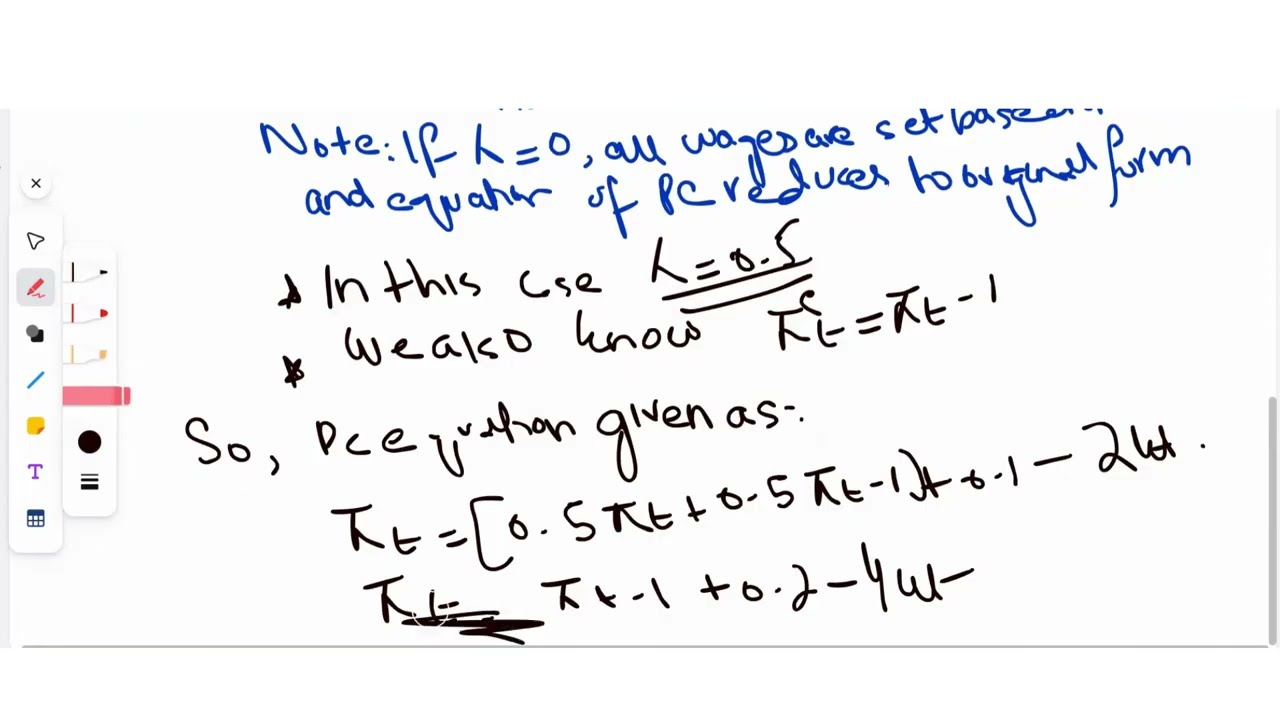 Note: If λ = 0, all wages are set based
and equation of PC reduces to original form
In this cse λ = 0.5
* We also know π^e_t = π_t-1
So, PC equation given as:-
π_t = [0.5π_t + 0.5π_t-1] + 0.1 - 2ut.
π_t = π_t-1 + 0.2 - 4ut
T